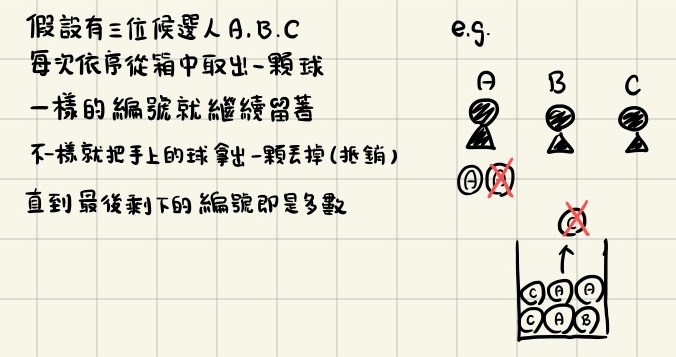 假設有三位候選人A.B.C
e.g.
每次依序從箱中取出一顆球
一樣的編號就繼續留著
不一樣就把手上的球拿出一顆丟掉(抵銷)
直到最後剩下的編號即是多數
A B C
A
C
C A A
C A B